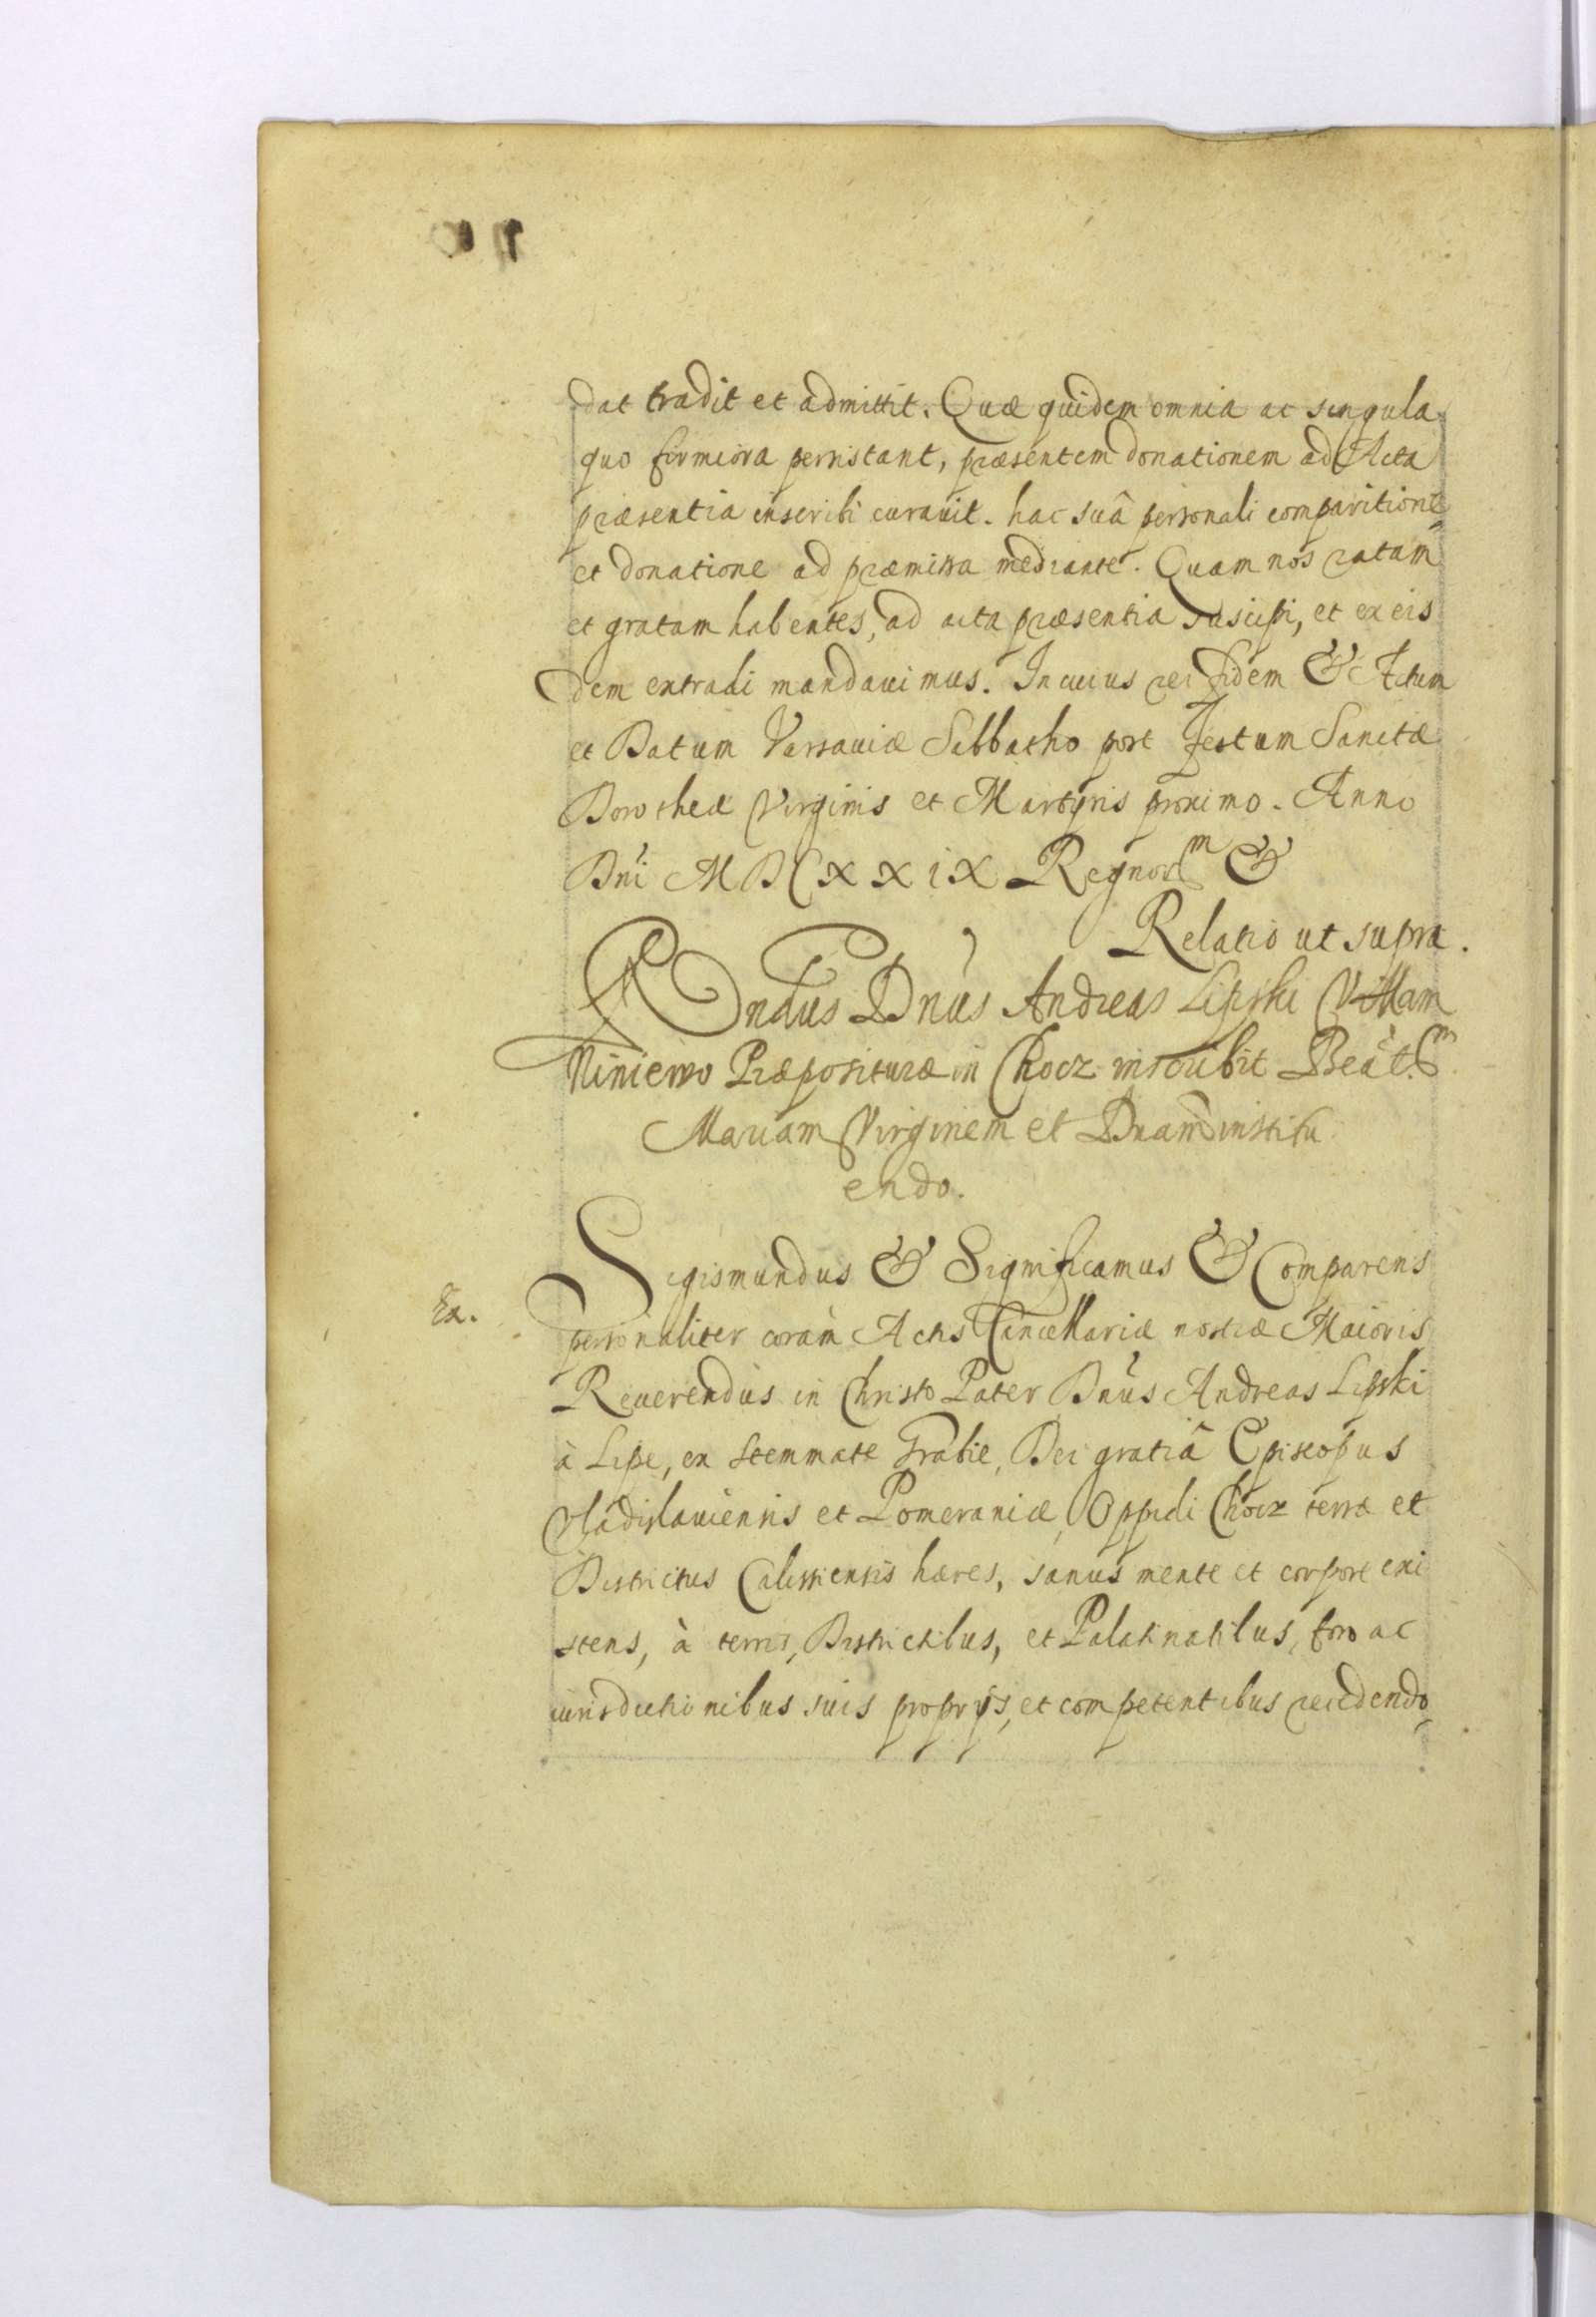 dat tradit et admittit. Quæ quidem omnia ac singula
quo firmiora persistant, præsentem donationem ad Acta
præsentia inscribi curauit. hac suâ personali comparitione
et donatione ad præmissa mediante. Quam nos ratam
et gratam habentes, ad acta præsentia suscipi, et ex eis
dem extradi mandauimus. In cuius rei fidem & Actum
et Datum Varsauiæ Sabbatho post Festum Sanctæ
Dorotheæ Virginis et Martyris proximo. Anno
Dni MDCXXiX Regnor m &
Relatio ut supra.
Rndus Dnus Andreas Lipski Villam
Niniewo Præposituræ in Chocz inscribit Beat. m
Mariam Virginem et Dnam institu
endo.
Sigismundus & Significamus & Comparens
Ex.
personaliter coram Actis Cancellariæ nostræ Maioris
Reuerendus in Christo Pater Dnus Andreas Lipski
à Lipe, ex stemmate Grabie, Dei gratiâ Episcopus
Vladislauiensis et Pomeraniæ, Oppidi Chocz terræ et
Districtus Calissiensis hæres, sanus mente et corpore exi
stens, à terris, Districtibus, et Palatinatibus, foro ac
iurisdictionibus suis proprijs, et competentibus recedendo